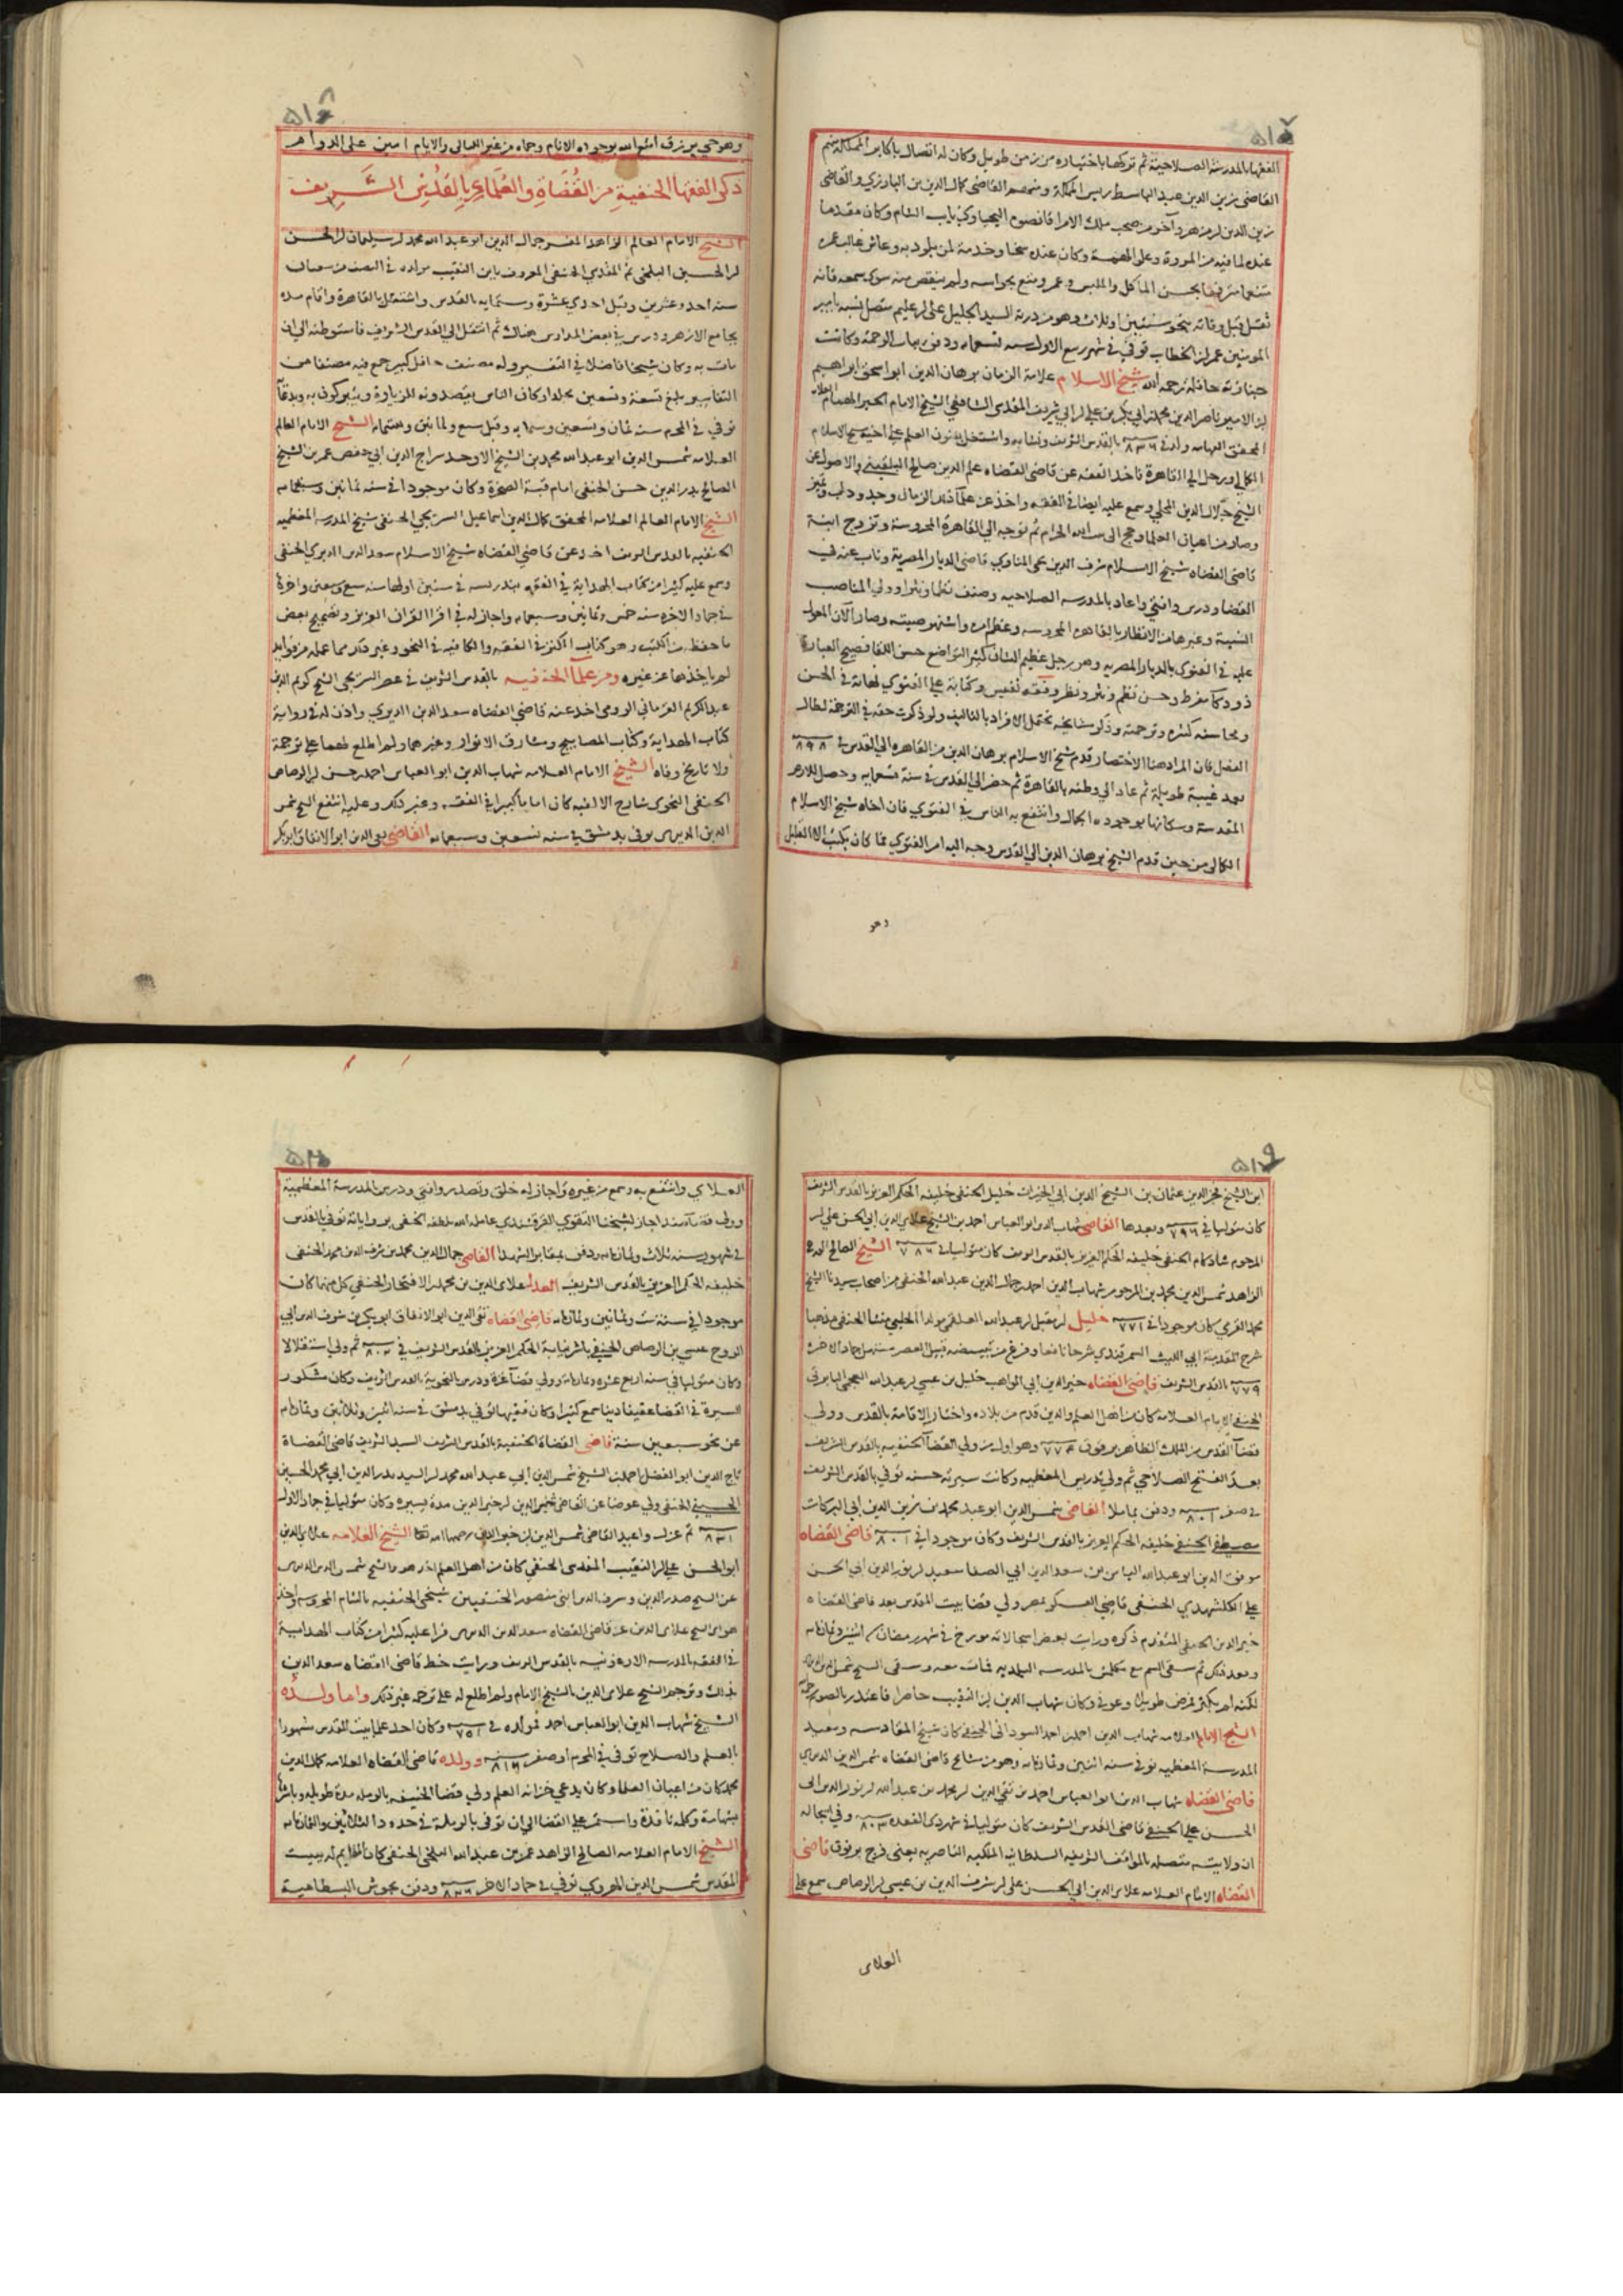 الفقها بالمدرسة الصلاحية ثم تركها باختياره من زمن طويل وكان له اتصال باكابر المملكة منهم
القاضى زين الدين عبد الباسط رئيس المملكة وخصه القاضى كمال الدين بن البارزي والقاضى
زين الدين بن مزهر وآخر من صحب ملك الامرا قانصوه اليحياوي نايب الشام وكان مقدما
عنده لما فيه من المروة وعلو الهمة وكان عنده سخا وخدمة لمن يلوذ به وعاش غالب عمره
متنعما مترفها بحسن الماكل والملبس وعمر ومتع بحواسه ولم ينقص منه سوى سمعه فانه
ثقل قبل وفاته بنحو سنتين او ثلاث وهو من ذرية السيد الجليل على بن عليم متصل نسبه بامير
المومنين عمر بن الخطاب توفي في شهر ربيع الاول سنه تسعمايه ودفن بباب الرحمة وكانت
جنازته حافله رحمه الله شيخ الاسلام علامة الزمان برهان الدين ابو اسحق ابراهيم
بن الامير ناصر الدين محمد بن ابي بكر بن علي بن ابي شريف المقدسى الشافعي الشيخ الامام الحبر الهمام العلامه
المحقق الفهامه ولد في سنة ٨٣٦ بالقدس الشريف ونشا به واشتغل بفنون العلم على اخيه شيخ الاسلام
الكمالي ورحل الي القاهرة فاخذ الفقه عن قاضى القضاه علم الدين صالح البلقيني والاصول عن
الشيخ جلال الدين المحلي وسمع عليه ايضا في الفقه واخذ عن علما ذلك الزمان وجد ودأب وتميز
وصار من اعيان العلما وحج الى بيت الله الحرام ثم توجه الي القاهرة المحروسة وتزوج ابنة
قاضى القضاه شيخ الاسلام شرف الدين يحيى المناوي قاضى الديار المصرية وناب عنه في
القضا ودرس وافتي واعاد بالمدرسه الصلاحيه وصنف نظما ونثرا وولي المناصب
السنية وغيرها من الانظار بالقاهره المحروسه وعظم امره واشتهر صيته وصار الآن المعول
عليه في الفتوى بالديار المصريه وهو رجل عظيم الشان كثير التواضع حسن اللقا فصيح العبارة
ذو ذكا مفرط وحسن نظم ونثر ونظر وفقه نفيس وكتابة على الفتوي نهاية في الحسن
ومحاسنه كثيره وترجمته وذكر مشايخه تحتمل الافراد بالتاليف ولو ذكرت حقه في الترجمة لطال
الفصل فان المراد هنا الاختصار قدم شيخ الاسلام برهان الدين من القاهره الي القدس في سنة ٨٩٨
بعد غيبة طويلة ثم عاد الى وطنه بالقاهرة ثم حضر الي القدس في سنة تسعمايه وحصل للارض
المقدسة وسكانها بوجوده الجمال وانتفع به الناس في الفتوي فان اخاه شيخ الاسلام
الكمالى من حين قدم الشيخ برهان الدين الي القدس وجه اليه امر الفتوي فما كان يكتب الا القليل
وهو
وهو حي يرزق امتع الله بوجوده الانام وحماه من غير الليالى والايام امين على الدوام
ذكر الفقها الحنفية من القضاة والعلماء بالقدس الشريف
الشيخ الامام العالم الزاهد المفسر جمال الدين ابو عبد الله محمد بن سليمان بن الحسن
بن الحسين البلخى ثم المقدسي الحنفى المعروف بابن النقيب مولده في النصف من شعبان
سنه احدو عشرين وقيل احدي عشرة وستمايه بالقدس واشتغل بالقاهرة واقام مده
بجامع الازهر ودرس في بعض المدارس هناك ثم انتقل الي القدس الشريف فاستوطنه الى ان
مات به وكان شيخا فاضلا في التفسير وله مصنف حافل كبير جمع فيه مصنفا من
التفاسير بلغ تسعة وتسعين مجلدا وكان الناس يقصدونه للزيارة ويتبركون به وبدعآئه
توفي في المحرم سنه ثمان وتسعين وستمايه وقيل سبع وثمانين وستمايه الشيخ الامام العالم
العلامه شمس الدين ابو عبد الله محمد بن الشيخ الاوحد سراج الدين ابي حفص عمر بن الشيخ
الصالح بدر الدين حسن الحنفى امام قبة الصخرة وكان موجودا في سنه ثمانين وسبعمايه
الشيخ الامام العالم العلامه المحقق كمال الدين اسماعيل الشريحي الحنفى شيخ المدرسه المعظميه
الحنفيه بالقدس الشريف اخذ عن قاضي القضاه شيخ الاسلام سعد الدين الديري الحنفى
وسمع عليه كثيرا من كتاب الهداية في الفقه
ما حفظه من الكتب وهو كتاب الكنز في الفقه والكافيه في النحو وغير ذلك مما عمله من فوايد
لم ياخذها عن غيره ومن علمآ الحنفيه بالقدس الشريف في عصر الشريحي الشيخ كريم الدين
عبد الكريم القرماني الرومى اخذ عنه قاضي القضاه سعد الدين الديري واذن له في رواية
كتاب الهداية وكتاب المصابيح ومشارق الانوار وغيرهما ولم اطلع لهما على ترجمة
ولا تاريخ وفاه الشيخ الامام العلامه شهاب الدين ابو العباس احمد بن حسن بن الرصاص
الحنفى النحوى شارح الالفيه كان اماما كبيرا في الفقه وغير ذلك وعليه انتفع الشيخ شمس
الدين الديرى توفى بدمشق في سنه تسعين وسبعمايه القاضي تقى الدين ابو الانفاق ابو بكر
ابن الشيخ فخر الدين عثمان بن الشيخ الدين ابي الخيرات خليل الحنفى خليفه الحكم العزيز بالقدس الشريف
كان متوليا في سنة ٧٩٦ وبعدها القاضى شهاب الدين ابو العباس احمد بن الشيخ علاي الدين ابي الحسن علي بن
المرحوم شادكام الحنفى خليفه الحكم العزيز بالقدس الشريف كان متوليا في سنة ٧٨٦ الشيخ الصالح
الزاهد شمس الدين محمد بن المرحوم شهاب الدين احمد بن جمال الدين عبد الله الحنفى من اصحاب سيدنا الشيخ
محمد القرمي كان موجودا في سنة ٧٧١ خليل بن مقبل بن عبد الله العلقمى مولدا الحلبي منشا الحنفى مذهبا
شرح المقدمة ابي الليث السمرقندي شرحا نافعا وفرغ من تبييضه قبيل العصر مستهل جماد الآخرة
سنة ٧٧٩ بالقدس الشريف قاضى القضاه خير الدين ابي المواهب خليل بن عيسي بن عبد الله العجمي البابرتي
الحنفي الامام العلامه كان من اهل العلم والدين قدم من بلاده واختار الاقامة بالقدس وولى
قضآ القدس من الملك الظاهر برقوق في سنة ٧٨٤ وهو اول من ولي القضآ الحنفيه بالقدس الشريف
بعد الفتح الصلاحي ثم ولي تدريس المعظميه وكانت سيرته حسنه توفي بالقدس الشريف
في صفر سنة ٨٠١ ودفن بماملا القاضى شمس الدين ابو عبد محمد بن زين الدين ابي البركات
مصطفي الحنفي خليفه الحكم العزيز بالقدس الشريف وكان موجودا في سنة ٨٠١ قاضى القضاه
موفق الدين ابو عبد الله الياس بن سعد الدين ابي الصفا سعيد بن نور الدين ابي الحسن
علي الكلشهري الحنفى قاضي العسكر بمصر ولي قضا بيت المقدس بعد قاضى القضاه
خير الدين الحنفى المتقدم ذكره ورايت بعض اسجالاته مورخ في شهر رمضان سنه اثنين وثمانمايه
الشيخ الامام العلامه شهاب الدين احمد بن احمد السوداني الحنفي كان شيخ المقادسه ومعيد
المدرسة المعظميه توفي سنه اثنين وثمانمايه وهو من مشايخ قاضى القضاه شمس الدين الديري
قاضى القضاه شهاب الدين ابو العباس احمد بن تقي الدين بن محمد بن عبد الله بن نور الدين ابى
الحسن علي الحنفي قاضى القدس الشريف كان متوليا في شهر ذي القعده سنة ٨٠٣ وفي اسجاله
ان ولايته متصله بالمواقف الشريفه السلطانيه الملكيه الناصريه يعنى فرج بن برقوق قاضى
القضاه الامام العلامه علاي الدين ابي الحسن علي بن شرف الدين بن عيسي بن الرصاص سمع على
العلاى
العلاي وانتفع به وسمع من غيره واجاز له خلق وتصدر وافتى ودرس المدرسة المعظمية
في شهور سنه ثلاث وثمانمايه ودفن بمقابر الشهدا القاضى جمال الدين محمد بن شرف الدين محمد الحنفي
خليفه الحكم العزيز بالقدس الشريف العدل علاي الدين بن محمد بن الافتخار الحنفي كل منهما كان
موجودا في سنة ست وثمانين وثمانمايه قاضى القضاه تقي الدين ابو الانفاق ابو بكر بن شرف الدين ابي
الروح عيسي بن الرصاص الحنفي باشر نيابة الحكم العزيز بالقدس الشريف في سنة ٨٠٣ ثم ولي استقلالا
وكان متوليا في سنه اربع عشره وثمانمايه وولي قضآ غزة ودرس بالنحوية بالقدس الشريف وكان مشكور
السيرة في القضا عفيفا دينا سمع كثيرا وكان فقيها توفي بدمشق في سنه اثنين وثلاثين وثمانمايه
عن نحو سبعين سنة قاضى القضاة الحنفية بالقدس الشريف السيد الشريف قاضى القضاة
تاج الدين ابو الفضل احمد بن الشيخ شمس الدين ابي عبد الله محمد بن السيد بدر الدين ابي محمد الحسين
الحسيني الحنفى ولي عوضا عن القاضى شمس الدين بن خير الدين مدة يسيره وكان متوليا في جماد الاول
سنة ٨٣١ ثم عزل واعيد القاضي شمس الدين بن خير الدين رحمهما الله تعا الشيخ العلامه علاي الدين
ابو الحسن علي بن النقيب المقدسى الحنفي كان من اهل العلم
عن الشيخ صدر الدين وشرف الدين ابنى منصور الحنفيين شيخى الحنفيه بالشام المحروسه واخذ
في الفقه بالمدرسه الارغونيه بالقدس الشريف ورايت خط قاضى القضاه سعد الدين
بذلك وترجم الشيخ علاى الدين بالشيخ الامام ولم اطلع له على ترجمه غير ذلك واما ولده
الشيخ شهاب الدين ابو العباس احمد فمولده في سنة ٧٥١ وكان احد علما بيت المقدس مشهورا
بالعلم والصلاح توفي في المحرم او صفر سنة ٨١٦ وولده قاضى القضاه العلامه كمال الدين
محمد كان من اعيان العلما وكان يدعي خزانة العلم وولي قضا الحنفيه بالرمله مدة طويله وباشر
بشهامة وكلمه نافذة واستمر علي القضا الى ان توفى بالرملة في حدود الثلاثين والثمانمايه
الشيخ الامام العلامه الصالح الزاهد عمر بن عبد الله البلخى الحنفي كان ببيت
المقدس شمس الدين الهروي توفي في جماد الاخر سنة ٨٣٦ ودفن بحوش البسطامية